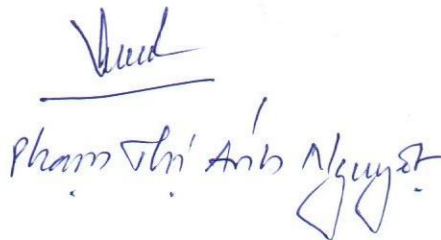 Phạm Thị Ánh Nguyệt